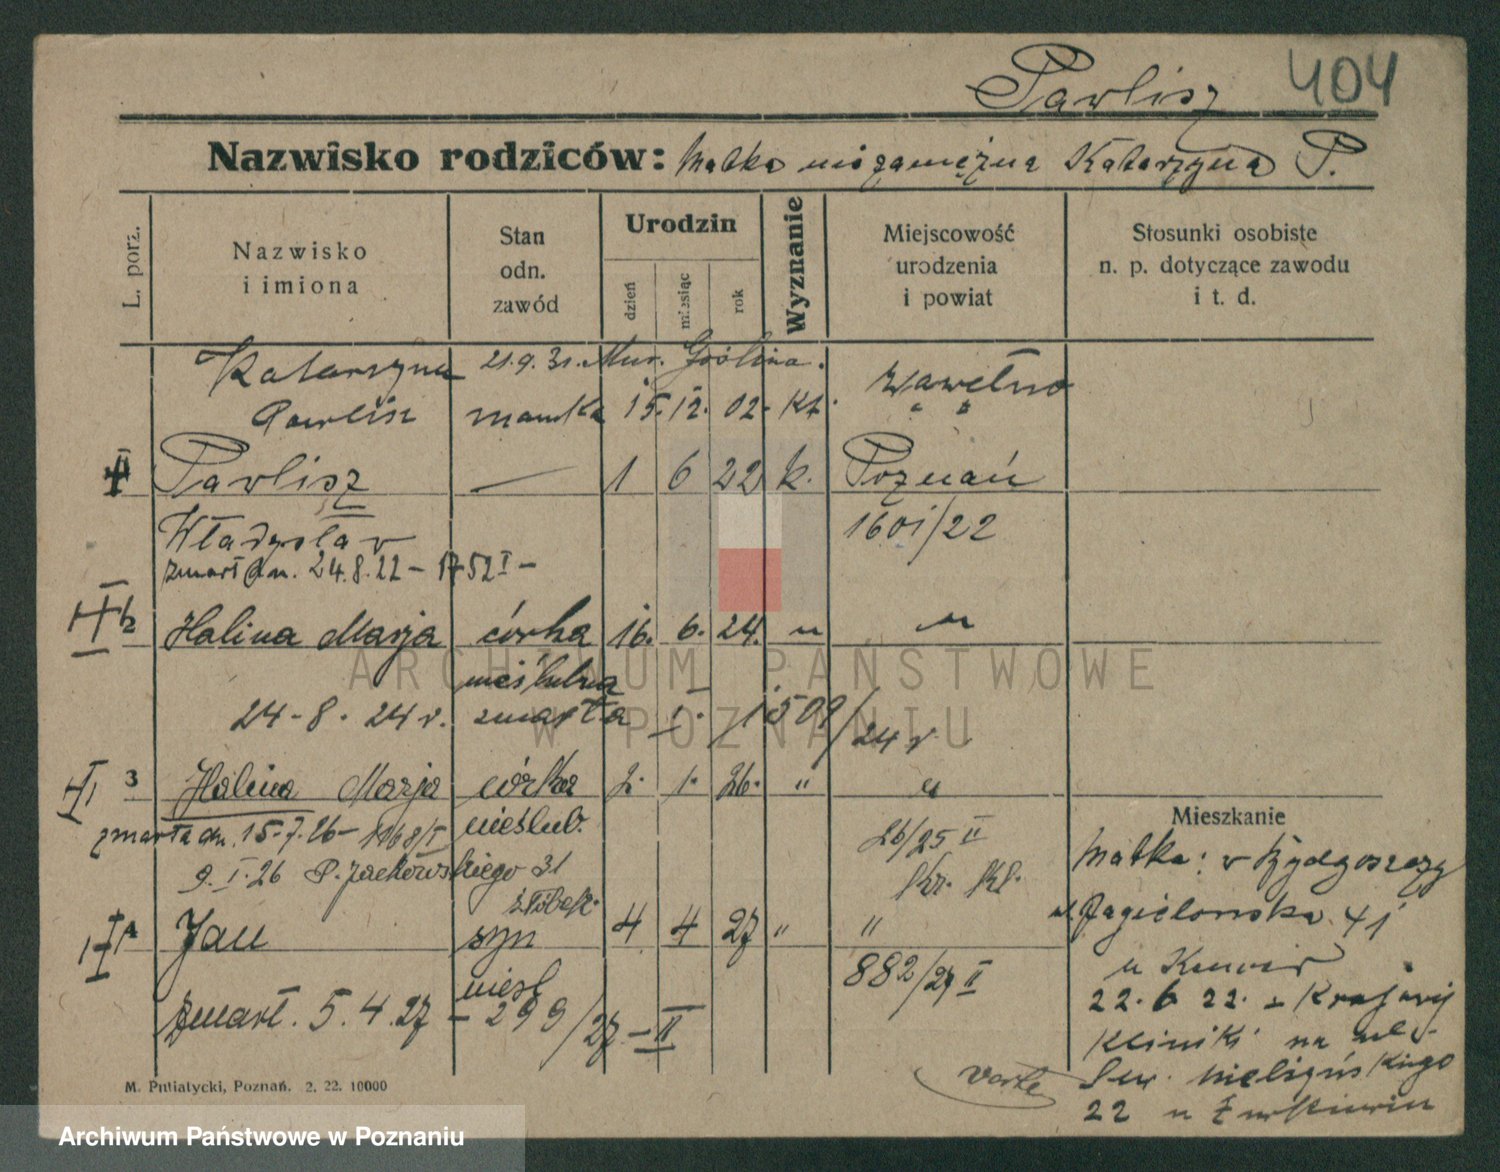 Pawlisz 404
Nazwisko rodziców: Matka niezamężna Katarzyna P.
L. porz.
Nazwisko
i imiona
Stan
odn.
zawód
Urodzin
dzień
miesiąc
rok
Wyznanie
Miejscowość
urodzenia
i powiat
Stosunki osobiste
n. p. dotyczące zawodu
i t. d.
Katarzyna 21.9.31. Mur. Goślina.
Pawlisz mamka 15. 12. 02. kt.
Pawlisz — 1 6 22 k. Poznań
Władysław 1601/22
zmarł dn. 24.8.22 – 1752 I –
2 Halina Marja córka 16. 6. 24. " "
nieślubna
24-8. 24 r. zmarła I. 1509/24 r
3 Halina Marja córka 2. 1. 26. " "
zmarła dn. 15.7.26 – 1168/I nieślub. 26/25 II
9.I.26 P. Jackowskiego 31 Kr. Kl.
żłóbek.
4 Jan syn 4 4 27 " "
nieśl 882/27 II
zmarł. 5.4.27 – 299/27 – II
Mieszkanie
Matka: w Bydgoszczy
ul. Jagielońska 41
22.6 22. z Krajowej
Kliniki na ul.
22 u
verte
M. Putiatycki, Poznań. 2. 22. 10000
ARCHIWUM PAŃSTWOWE
W POZNANIU
Archiwum Państwowe w Poznaniu